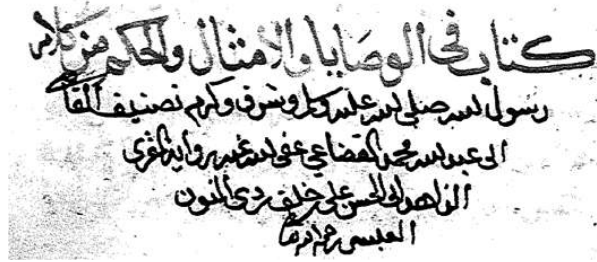 كتاب في الوصايا والامثال والحكم من كلام
رسول الله صلى الله عليه وسلم وشرف وكرم تصنيف القاضي
ابى عبد الله محمد القضاعي عفى الله عنه رواية المقرى
الزاهد ابو الحسن على خلف ذى النون
العبسى رحم